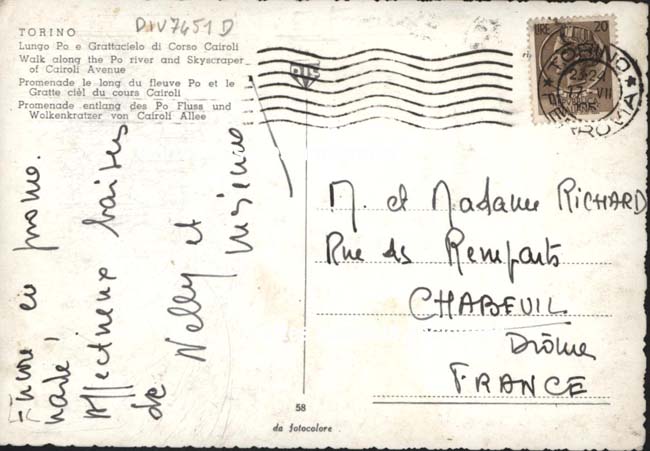 DIV7651D
TORINO
Lungo Po e Grattacielo di Corso Cairoli
Walk along the Po river and Skyscraper
of Cairoli Avenue
Promenade le long du fleuve Po et le
Gratte cièl du cours Cairoli
Promenade entlang des Po Fluss und
Wolkenkratzer von Cairoli Allee
LIRE 20
TORINO
FERROVIA
en promo.
nade,
Affectueux baisers
de Nelly et
M. et Madame RICHARD
Rue des Remparts
CHABEUIL
Drôme
FRANCE
58
da fotocolore